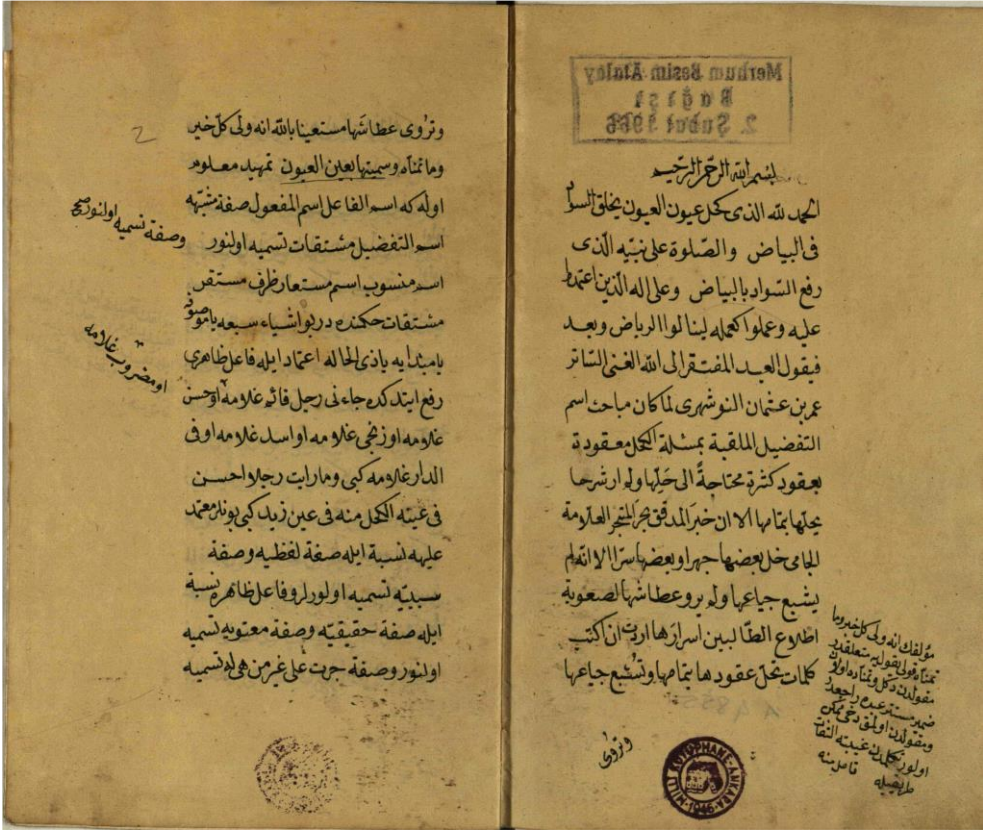 Merhum Besim Atalay
Bağışı
2. Şubat 1966
بسم الله الرحمن الرحيم
الحمد لله الذى كحل عيون العيون بخلق السواد
فى البياض والصلوة على نبيه الذى
رفع السواد بالبياض وعلى اله الذين اعتمدوا
عليه وعملوا كعمله لينالوا الرياض وبعد
فيقول العبد المفتقر الى الله الغنى الساتر
عمر بن عثمان النوشهرى لما كان مباحث اسم
التفضيل الملقبة بمسئلة الكحل معقودة
بعقود كثرة محتاجةً الى حلها ولم ار شرحا
يحلها بتمامها الا ان خبر المدقق بحر المتبحر العلامة
الجامى حل بعضها جهرا وبعضها سرا الا انه لم
يشبع جياعها ولم يرو عطاشها لصعوبة
اطلاع الطالبين اسرارها اردت ان اكتب
كلمات تحل عقودها بتمامها وتشبع جياعها
وتروى
مؤلفك انه ولى كل خير وما
تمناه قولى بقوله متعلقدر
مقولدن دكل وتمناده اولان
ضمير مستتر عبده راجعدر
ومقولدن اولمق دخى ممكن
اولور تكلمدن غيبته التفات
طريقيله تأمل منه
MİLLİ KÜTÜPHANE-ANKARA
1946
2
وتروى عطاشها مستعينا بالله انه ولى كل خير
وما تمناه وسميتها بعين العيون تمهيد معلوم
اوله كه اسم الفاعل اسم المفعول صفة مشبهه
اسم التفضيل مشتقات تسميه اولنور
وصفة تسميه اولنور صح
اسم منسوب اسم مستعار ظرف مستقر
مشتقات حكمنده در بو اشياء سبعه يا موصوفه
يا مبتدايه يا ذى الحاله اعتماد ايله فاعل ظاهرى
رفع ايتدكده جاءنى رجل قائم غلامه او حسن
او مضروب غلامه
غلامه او زنجى غلامه او اسد غلامه او فى
الدار غلامه كبى وما رايت رجلا احسن
فى عينه الكحل منه فى عين زيد كبى بونلر معتمد
عليهه نسبة ايله صفة لفظيه وصفة
سببيه تسميه اولنورلر وفاعل ظاهره نسبة
ايله صفة حقيقيه وصفة معنويه تسميه
اولنور وصفة جرت على غير من هى له تسميه